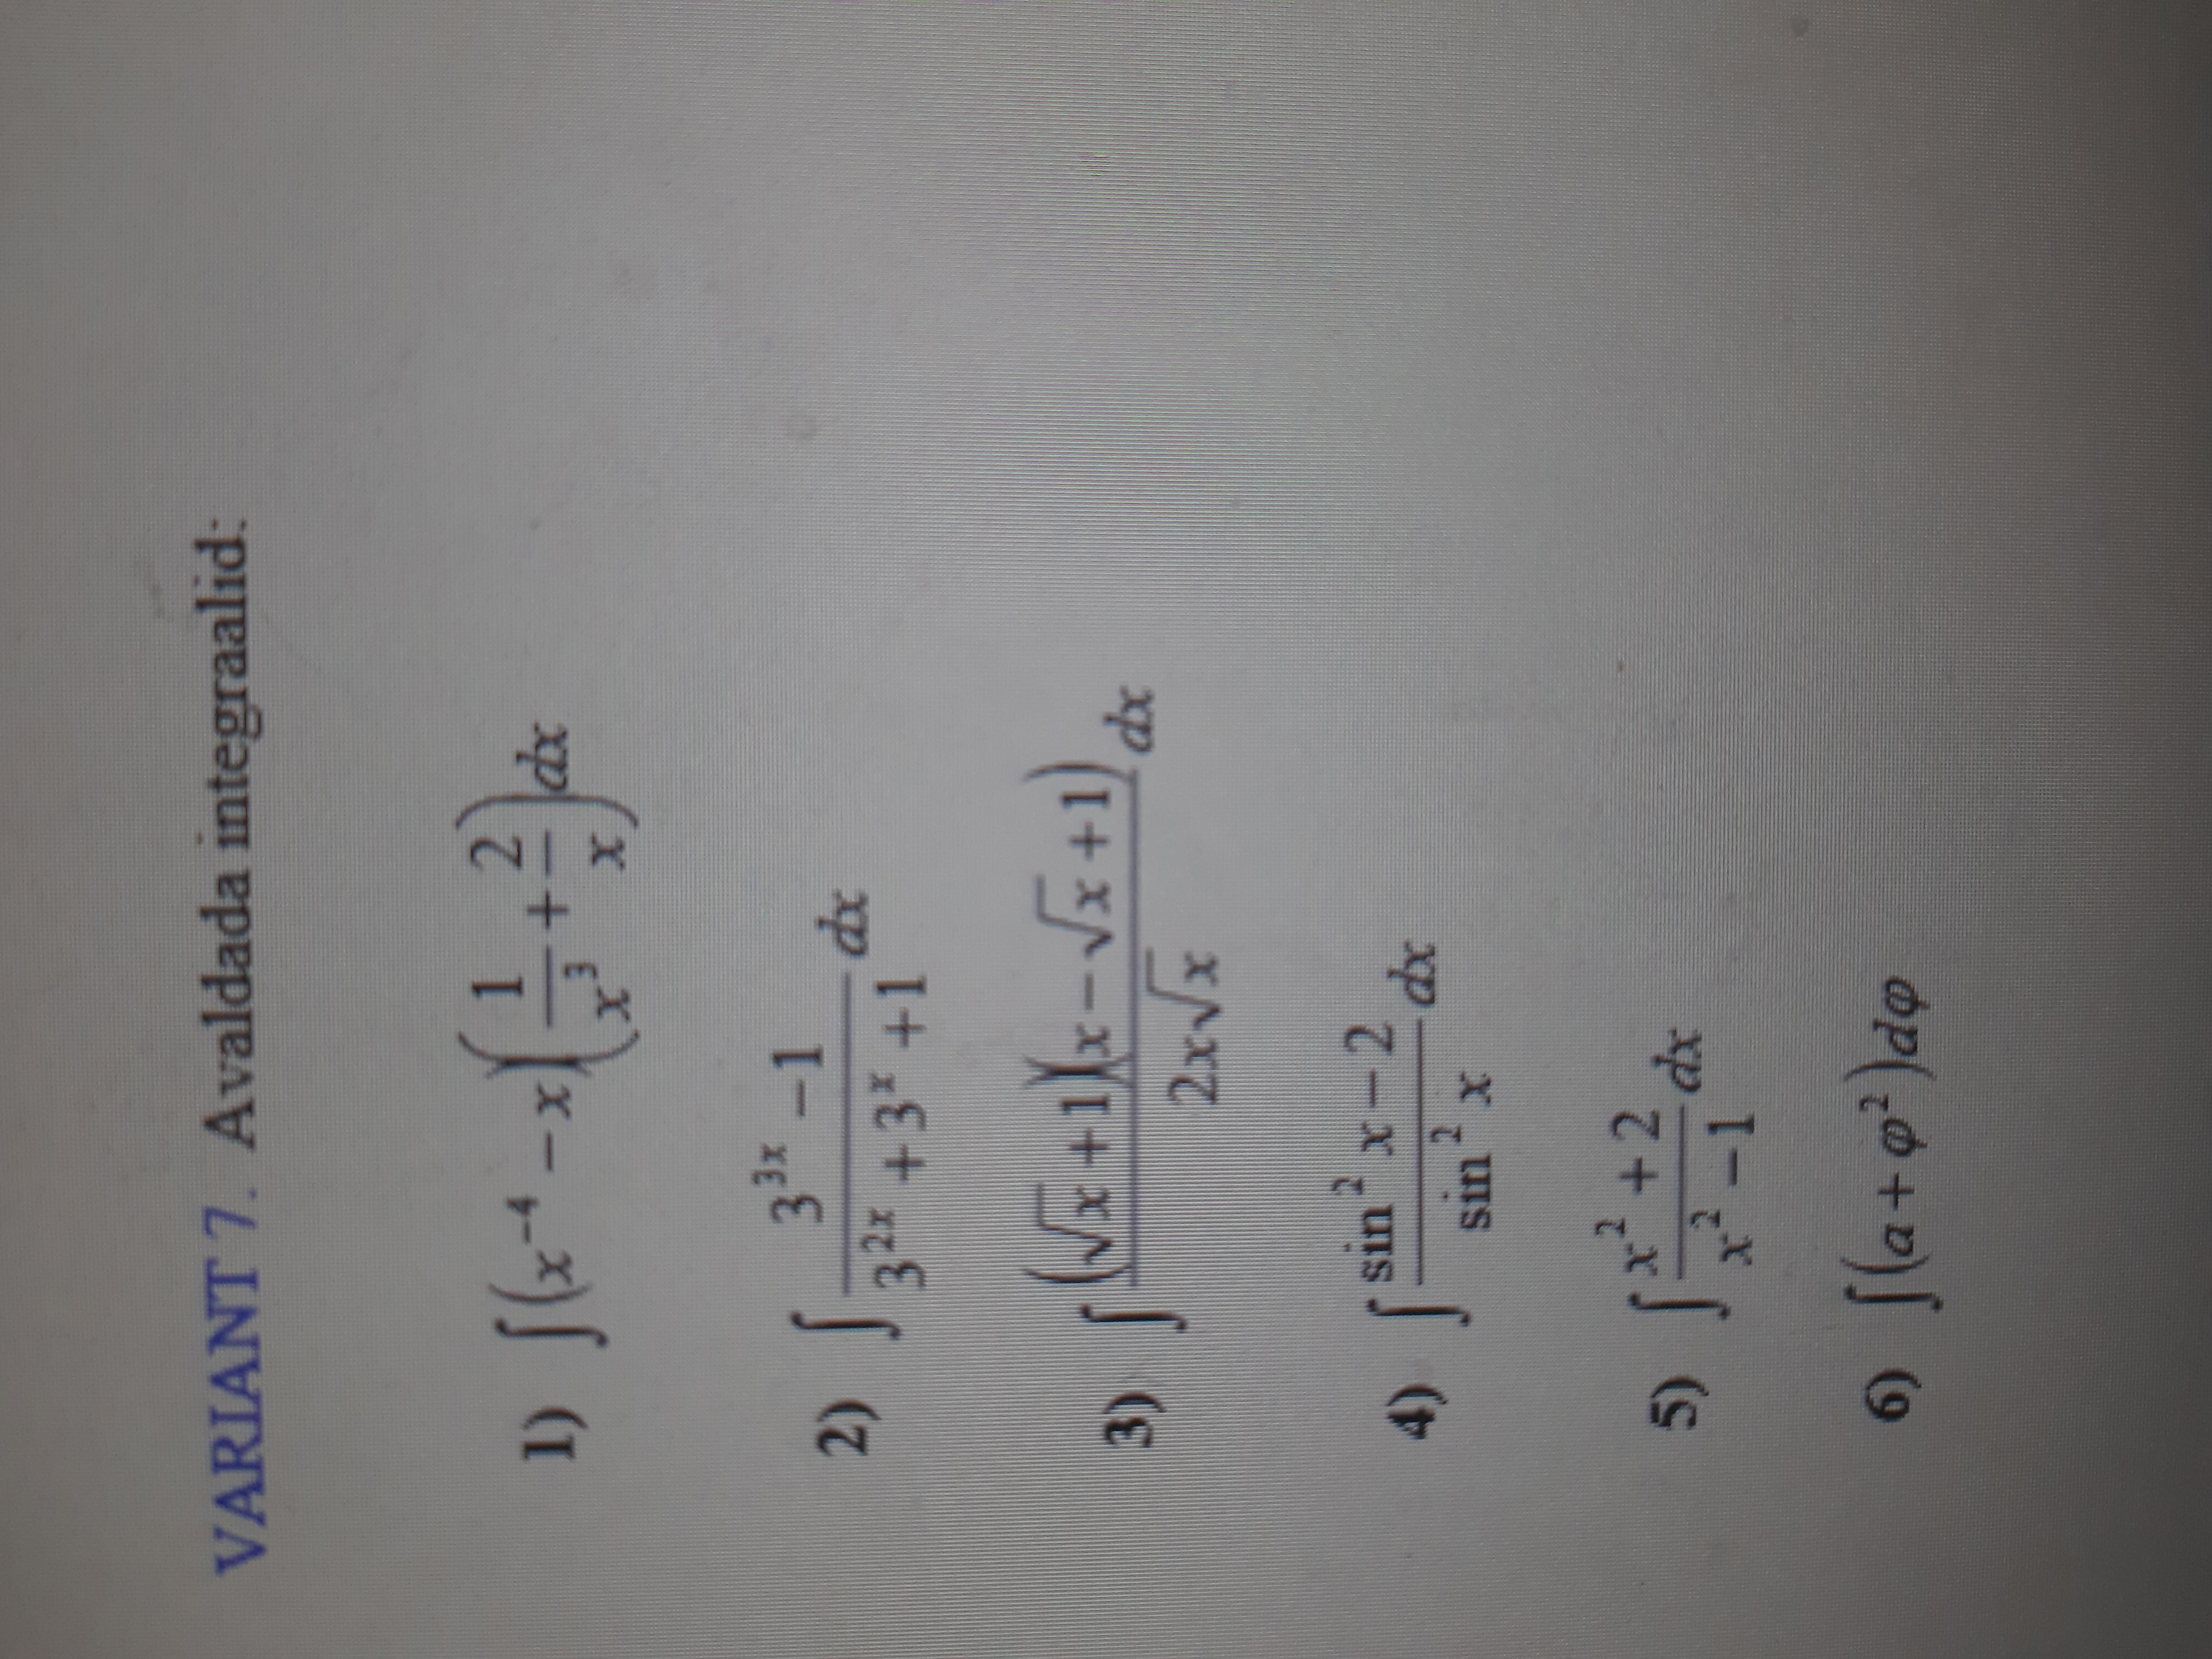 VARIANT 7. Avaldada integraalid:
1) ∫(x⁻⁴ − x)(1/x³ + 2/x)dx
2) ∫ (3³ˣ − 1)/(3²ˣ + 3ˣ + 1) dx
3) ∫ (√x + 1)(x − √x + 1)/(2x√x) dx
4) ∫ (sin² x − 2)/(sin² x) dx
5) ∫ (x² + 2)/(x² − 1) dx
6) ∫(a + φ²)dφ